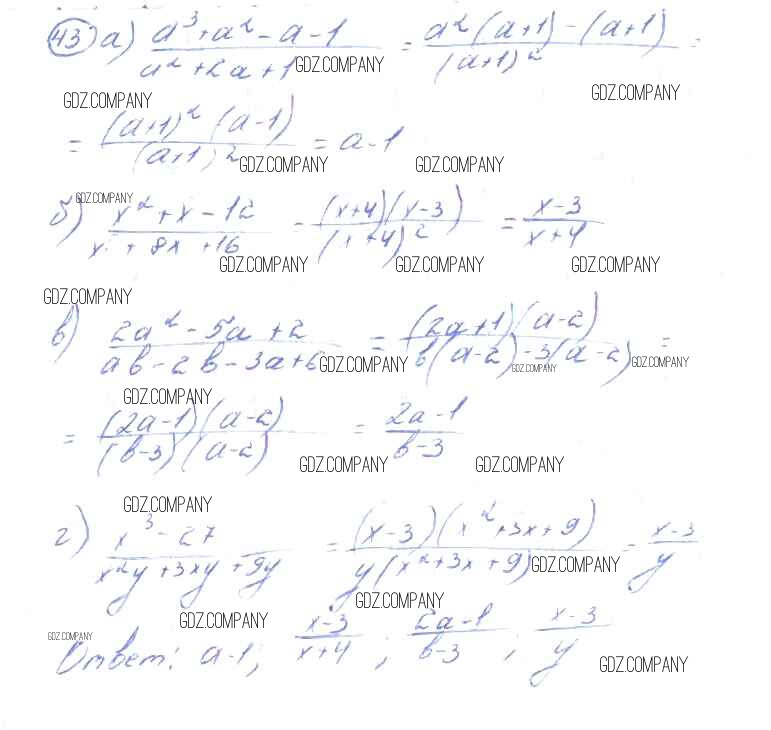 43) а) (a³ + a² - a - 1)/(a² + 2a + 1) = (a²(a+1) - (a+1))/(a+1)² =
GDZ.COMPANY
GDZ.COMPANY GDZ.COMPANY
= ((a+1)²(a-1))/(a+1)² = a-1
GDZ.COMPANY GDZ.COMPANY
GDZ.COMPANY
б) (x² + x - 12)/(x² + 8x + 16) = ((x+4)(x-3))/(x+4)² = (x-3)/(x+4)
GDZ.COMPANY GDZ.COMPANY GDZ.COMPANY
GDZ.COMPANY
в) (2a² - 5a + 2)/(ab - 2b - 3a + 6) = ((2a+1)(a-2))/(b(a-2) - 3(a-2)) =
GDZ.COMPANY GDZ.COMPANY GDZ.COMPANY
GDZ.COMPANY
= ((2a-1)(a-2))/((b-3)(a-2)) = (2a-1)/(b-3)
GDZ.COMPANY GDZ.COMPANY
GDZ.COMPANY
г) (x³ - 27)/(x²y + 3xy + 9y) = ((x-3)(x²+3x+9))/(y(x²+3x+9)) = (x-3)/y
GDZ.COMPANY
GDZ.COMPANY
GDZ.COMPANY
GDZ.COMPANY
Ответ: a-1; (x-3)/(x+4); (2a-1)/(b-3); (x-3)/y
GDZ.COMPANY